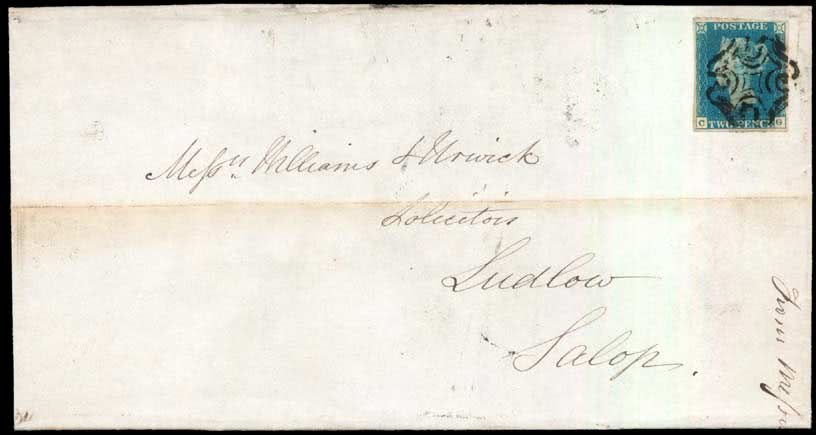 POSTAGE
C TWO PENCE G
Messrs Williams & Urwick
Solicitors
Ludlow
Salop.
From Messrs